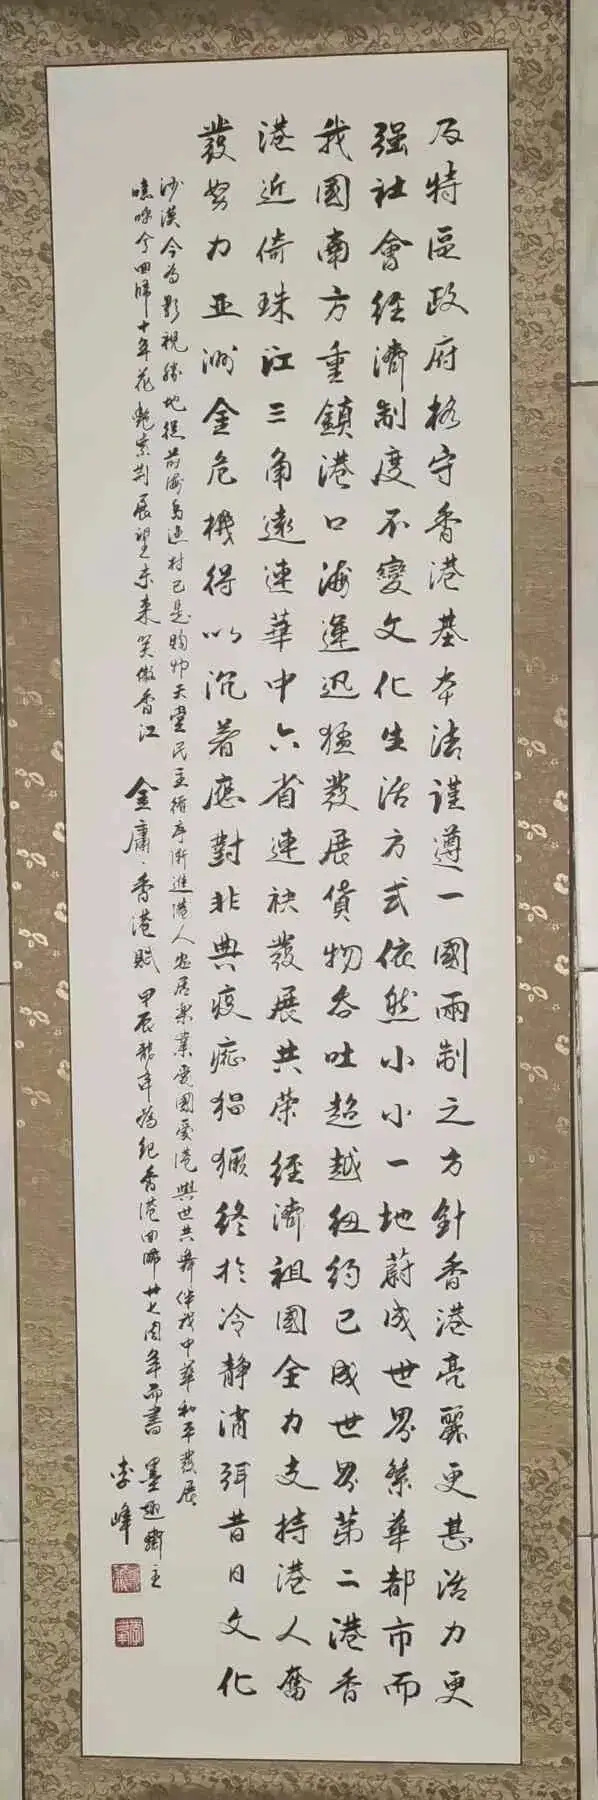 及特區政府格守香港基本法謹遵一國兩制之方針香港亮麗更甚活力更
强社會經濟制度不變文化生活方式依然小小一地蔚成世界繁華都市而
我國南方重鎮港口海運迅猛發展貨物吞吐超越紐約已成世界第二港香
港近倚珠江三角遠連華中六省連袂發展共荣經濟祖國全力支持港人奮
發努力亚洲金危機得以沉着應對非典疫症猖獗終於冷靜消弭昔日文化
沙漠今为影視勝地從前海島漁村已是购物天堂民主循序漸進港人安居樂業爱國愛港與世共舞伴我中華和平發展
嘻嘻兮回歸十年花艷紫荆展望未来笑傲香江 金庸·香港賦 甲辰龍年為紀香港回歸廿七周年而書 墨趣齋主
李峰